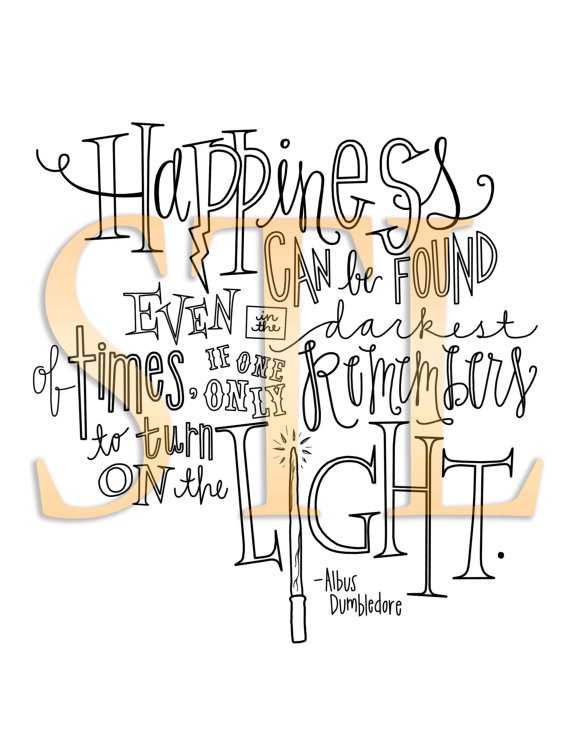 Happiness
CAN be FOUND
EVEN in the darkest
of times, IF ONE ONLY Remembers
to turn ON the LIGHT.
-Albus
Dumbledore
STL